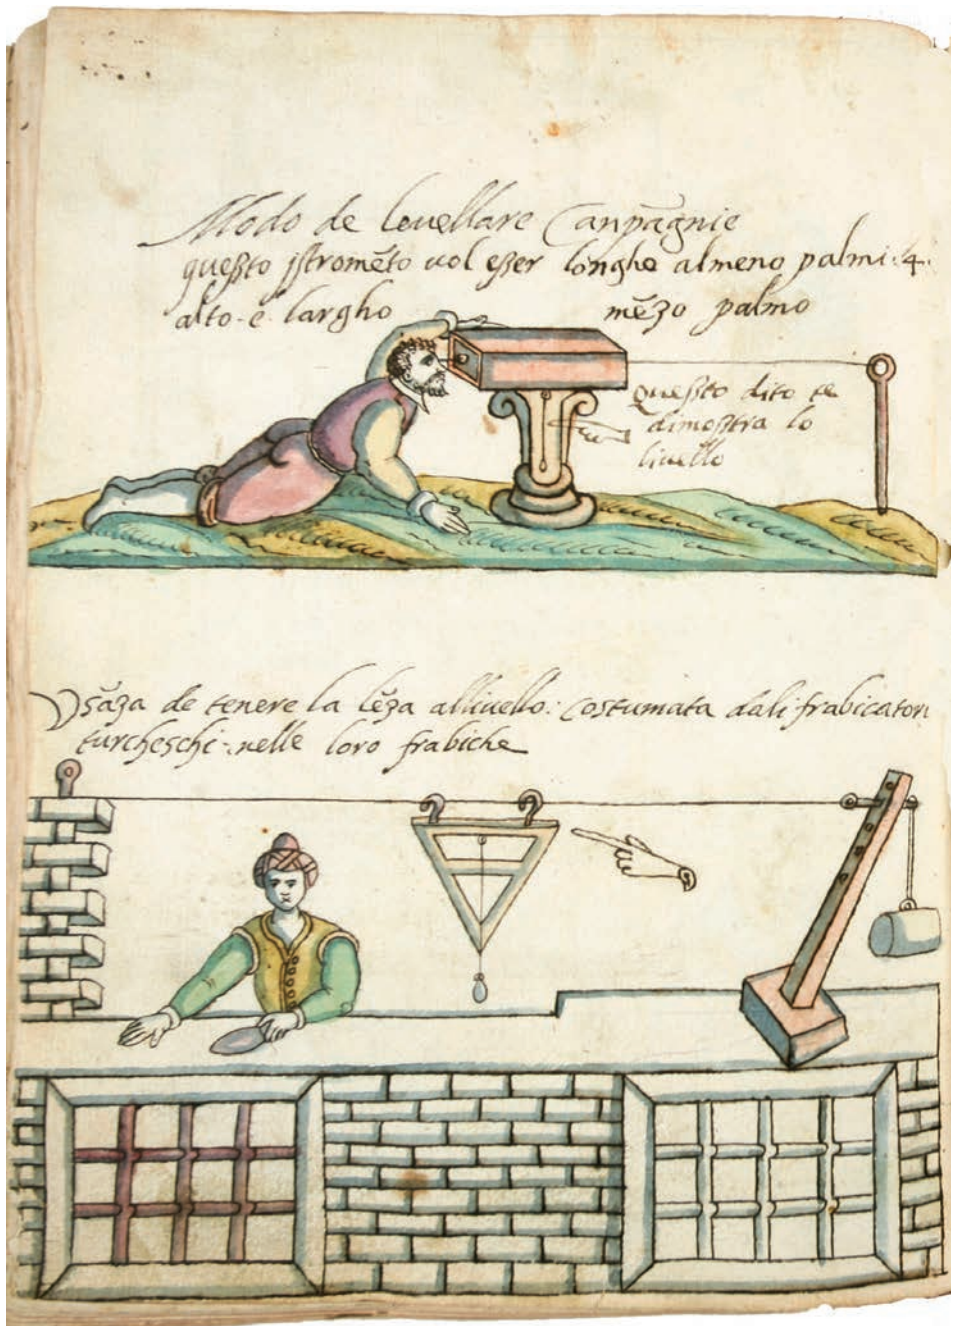 Modo de leuellare Canpāgnie
queßto jſtromēto uol eßer longho almeno palmi .4.
alto . e . largho mēzo palmo
Queßto dito te
dimoßtra lo
liuello
Vsāza de tenere la lēza alliuello : costumata dali frabicatori
turcheschi . nelle loro frabiche